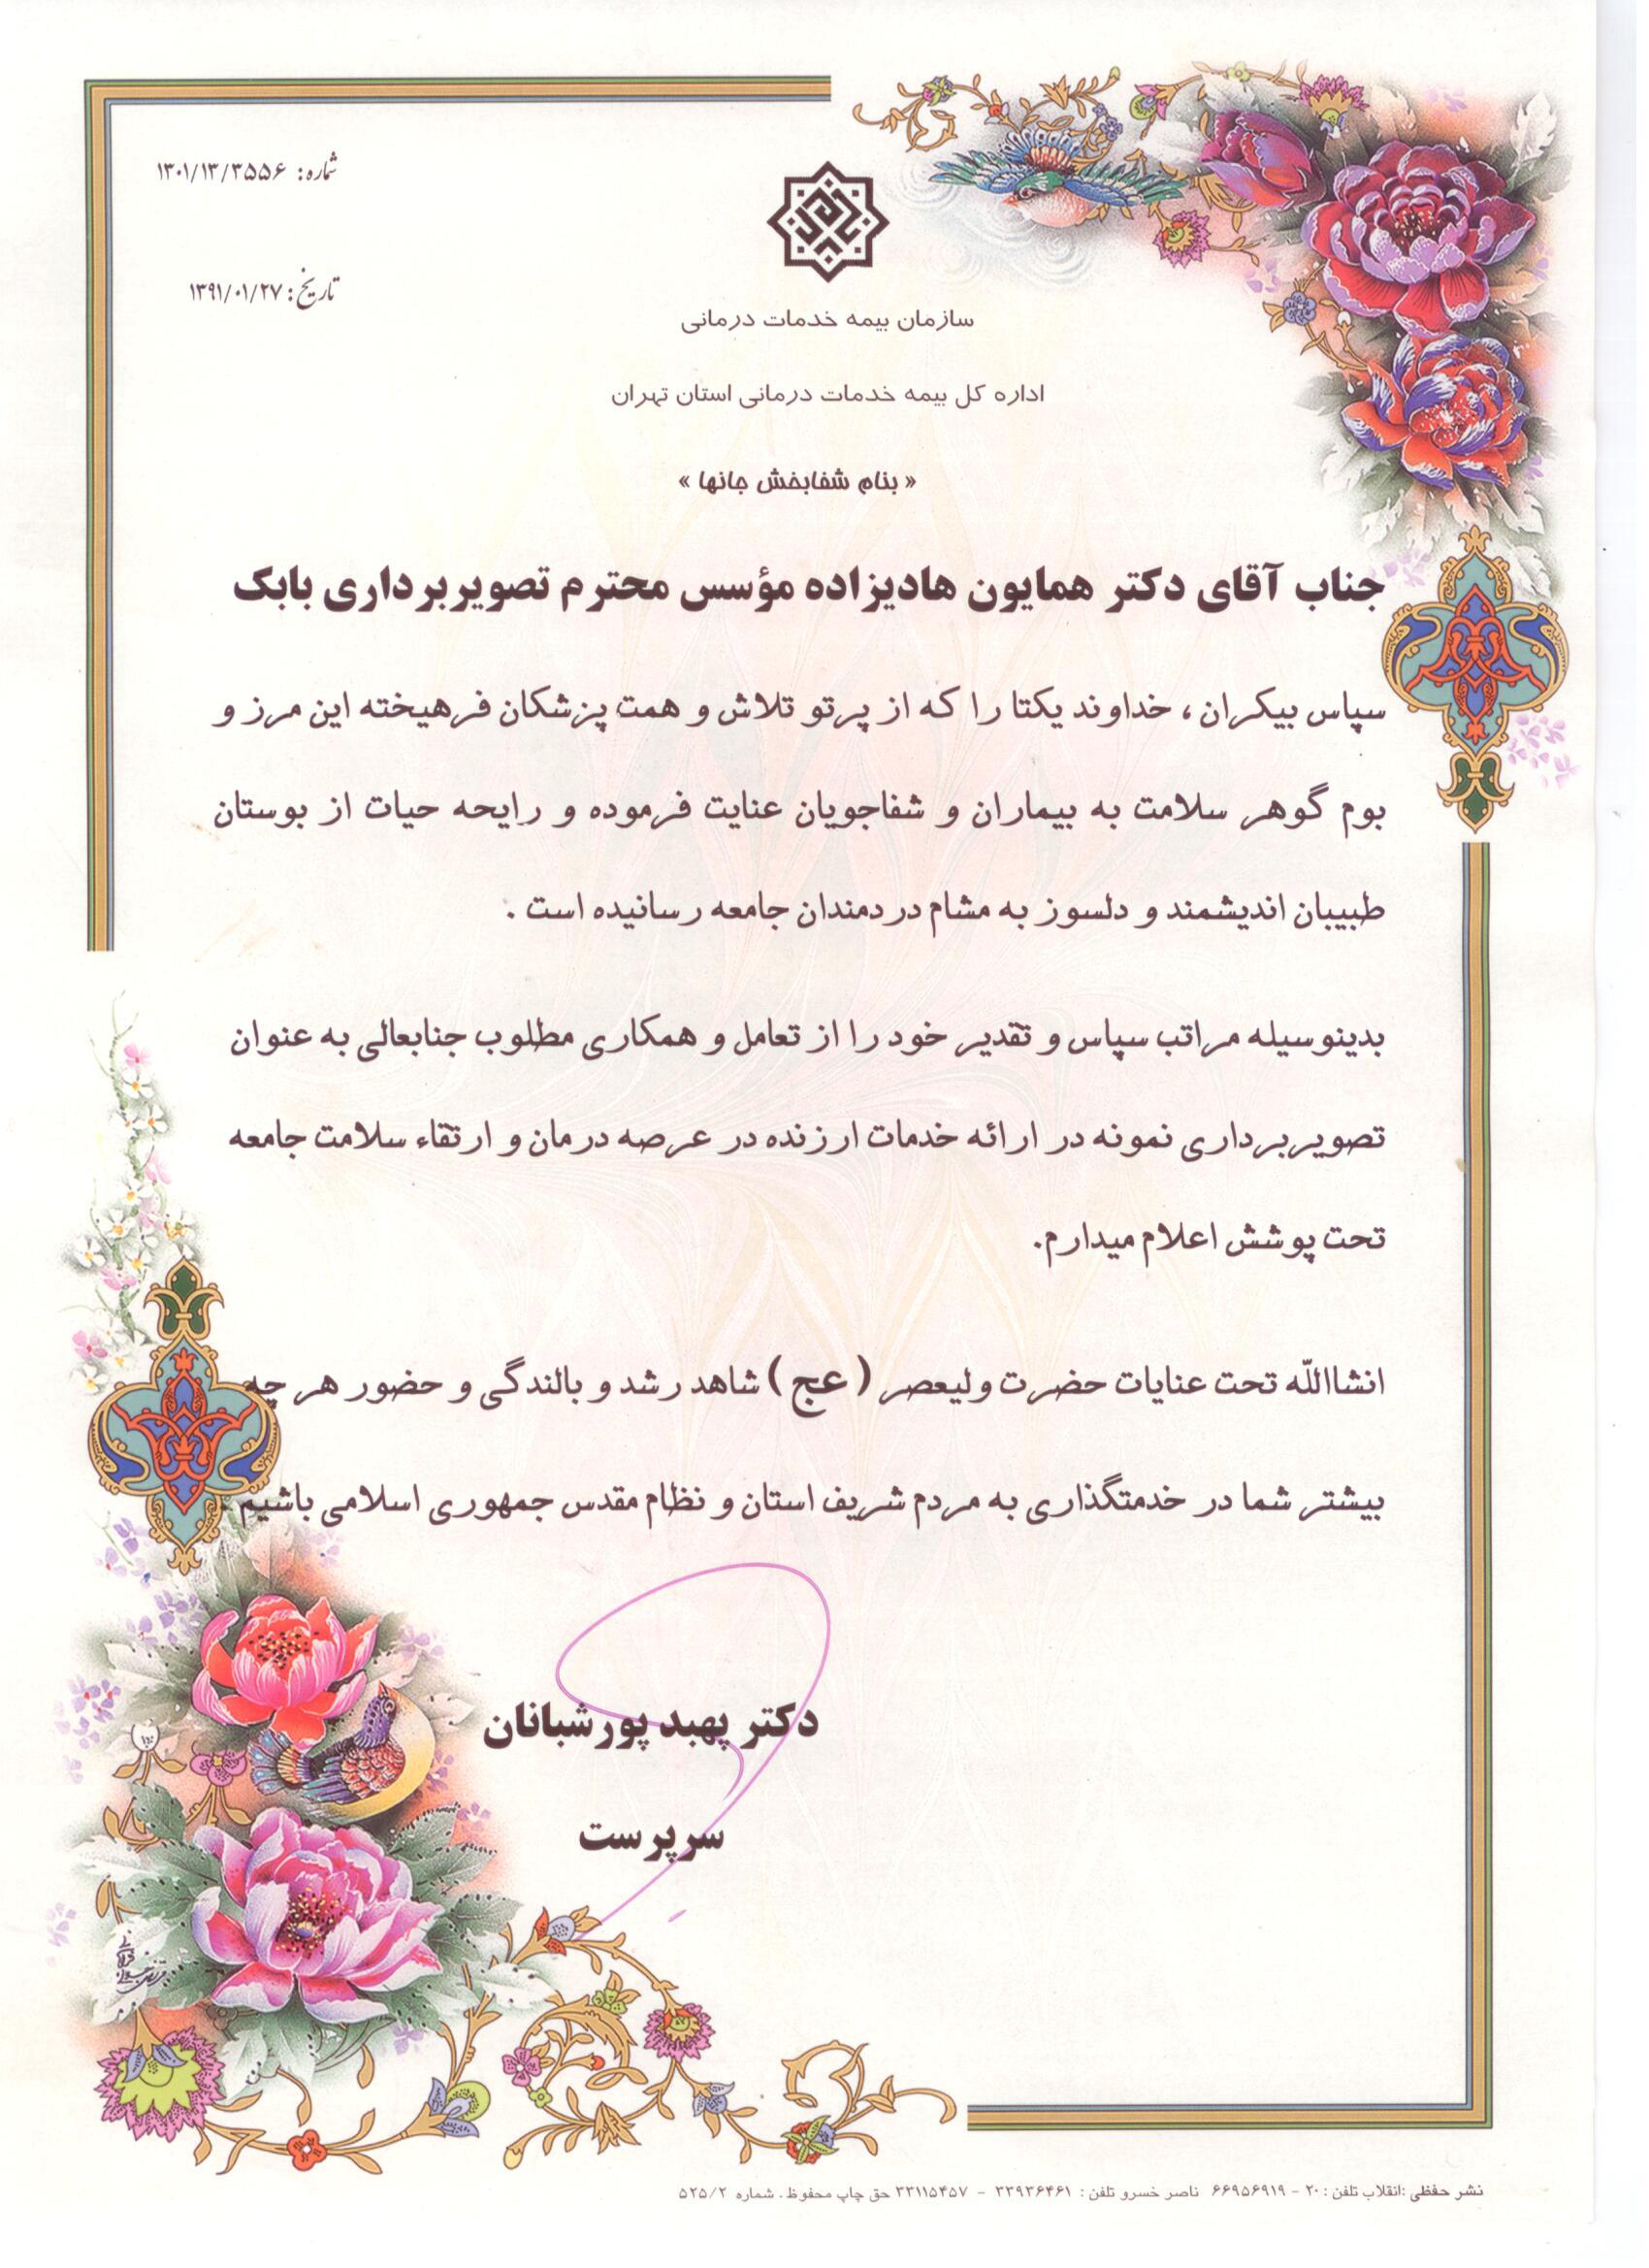 شماره: ۱۳۰۱/۱۳/۳۵۵۶
تاریخ: ۱۳۹۱/۰۱/۲۷
سازمان بیمه خدمات درمانی
اداره کل بیمه خدمات درمانی استان تهران
« بنام شفابخش جانها »
جناب آقای دکتر همایون هادیزاده مؤسس محترم تصویربرداری بابک
سپاس بیکران ، خداوند یکتا را که از پرتو تلاش و همت پزشکان فرهیخته این مرز و
بوم گوهر سلامت به بیماران و شفاجویان عنایت فرموده و رایحه حیات از بوستان
طبیبان اندیشمند و دلسوز به مشام دردمندان جامعه رسانیده است .
بدینوسیله مراتب سپاس و تقدیر خود را از تعامل و همکاری مطلوب جنابعالی به عنوان
تصویربرداری نمونه در ارائه خدمات ارزنده در عرصه درمان و ارتقاء سلامت جامعه
تحت پوشش اعلام میدارم.
انشاالله تحت عنایات حضرت ولیعصر (عج) شاهد رشد و بالندگی و حضور هر چه
بیشتر شما در خدمتگذاری به مردم شریف استان و نظام مقدس جمهوری اسلامی باشیم
دکتر پهبد پورشبانان
سرپرست
نشر حفظی :انقلاب تلفن : ۲۰ - ۶۶۹۵۶۹۱۹ ناصر خسرو تلفن : ۳۳۹۳۶۴۶۱ - ۳۳۱۱۵۴۵۷ حق چاپ محفوظ . شماره ۵۲۵/۲